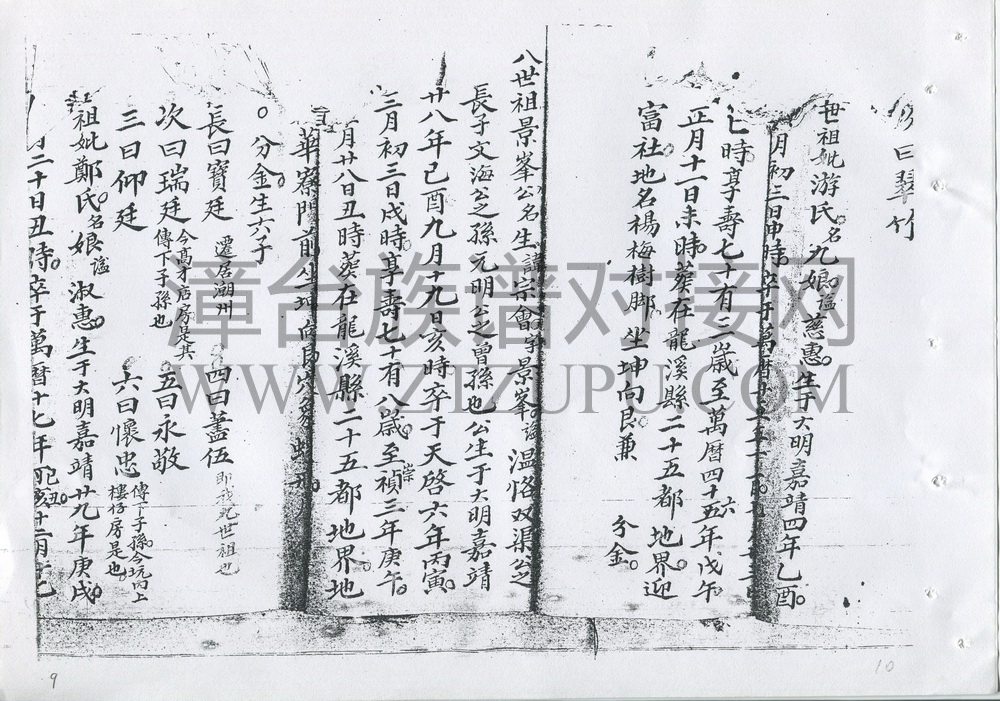 曰翠竹
世祖妣游氏名九娘謚慈惠生于大明嘉靖四年乙酉
月初三日申時卒于萬曆
時享壽七十有三歲至萬曆四十五六年戊午
正月十一日未時葬在龍溪縣二十五都地界迎
富社地名楊梅樹脚坐坤向艮兼
分金
八世祖景峯公名生諱宗會字景峯謚温恪双渠公之
長子文海公之孫元明公之曾孫也公生于大明嘉靖
廿八年己酉九月十九日亥時卒于天啓六年丙寅
三月初三日戌時享壽七十有八歲至崇禎三年庚午
月廿八日丑時葬在龍溪縣二十五都地界地
華寮門前坐坤向艮
分金生六子
長曰寶廷 遷居潮州 四曰蓋伍 即我九世祖也
次曰瑞廷 今高才店房是其傳下子孫也 五曰永敬
三曰仰廷 六曰懷忠 傳下子孫今坑內上樓仔房是也
祖妣鄭氏名娘謚淑惠生于大明嘉靖廿九年庚戌
月二十日丑時卒于萬曆十七年
漳台族谱对接网
WWW.ZTZUPU.COM
9
10